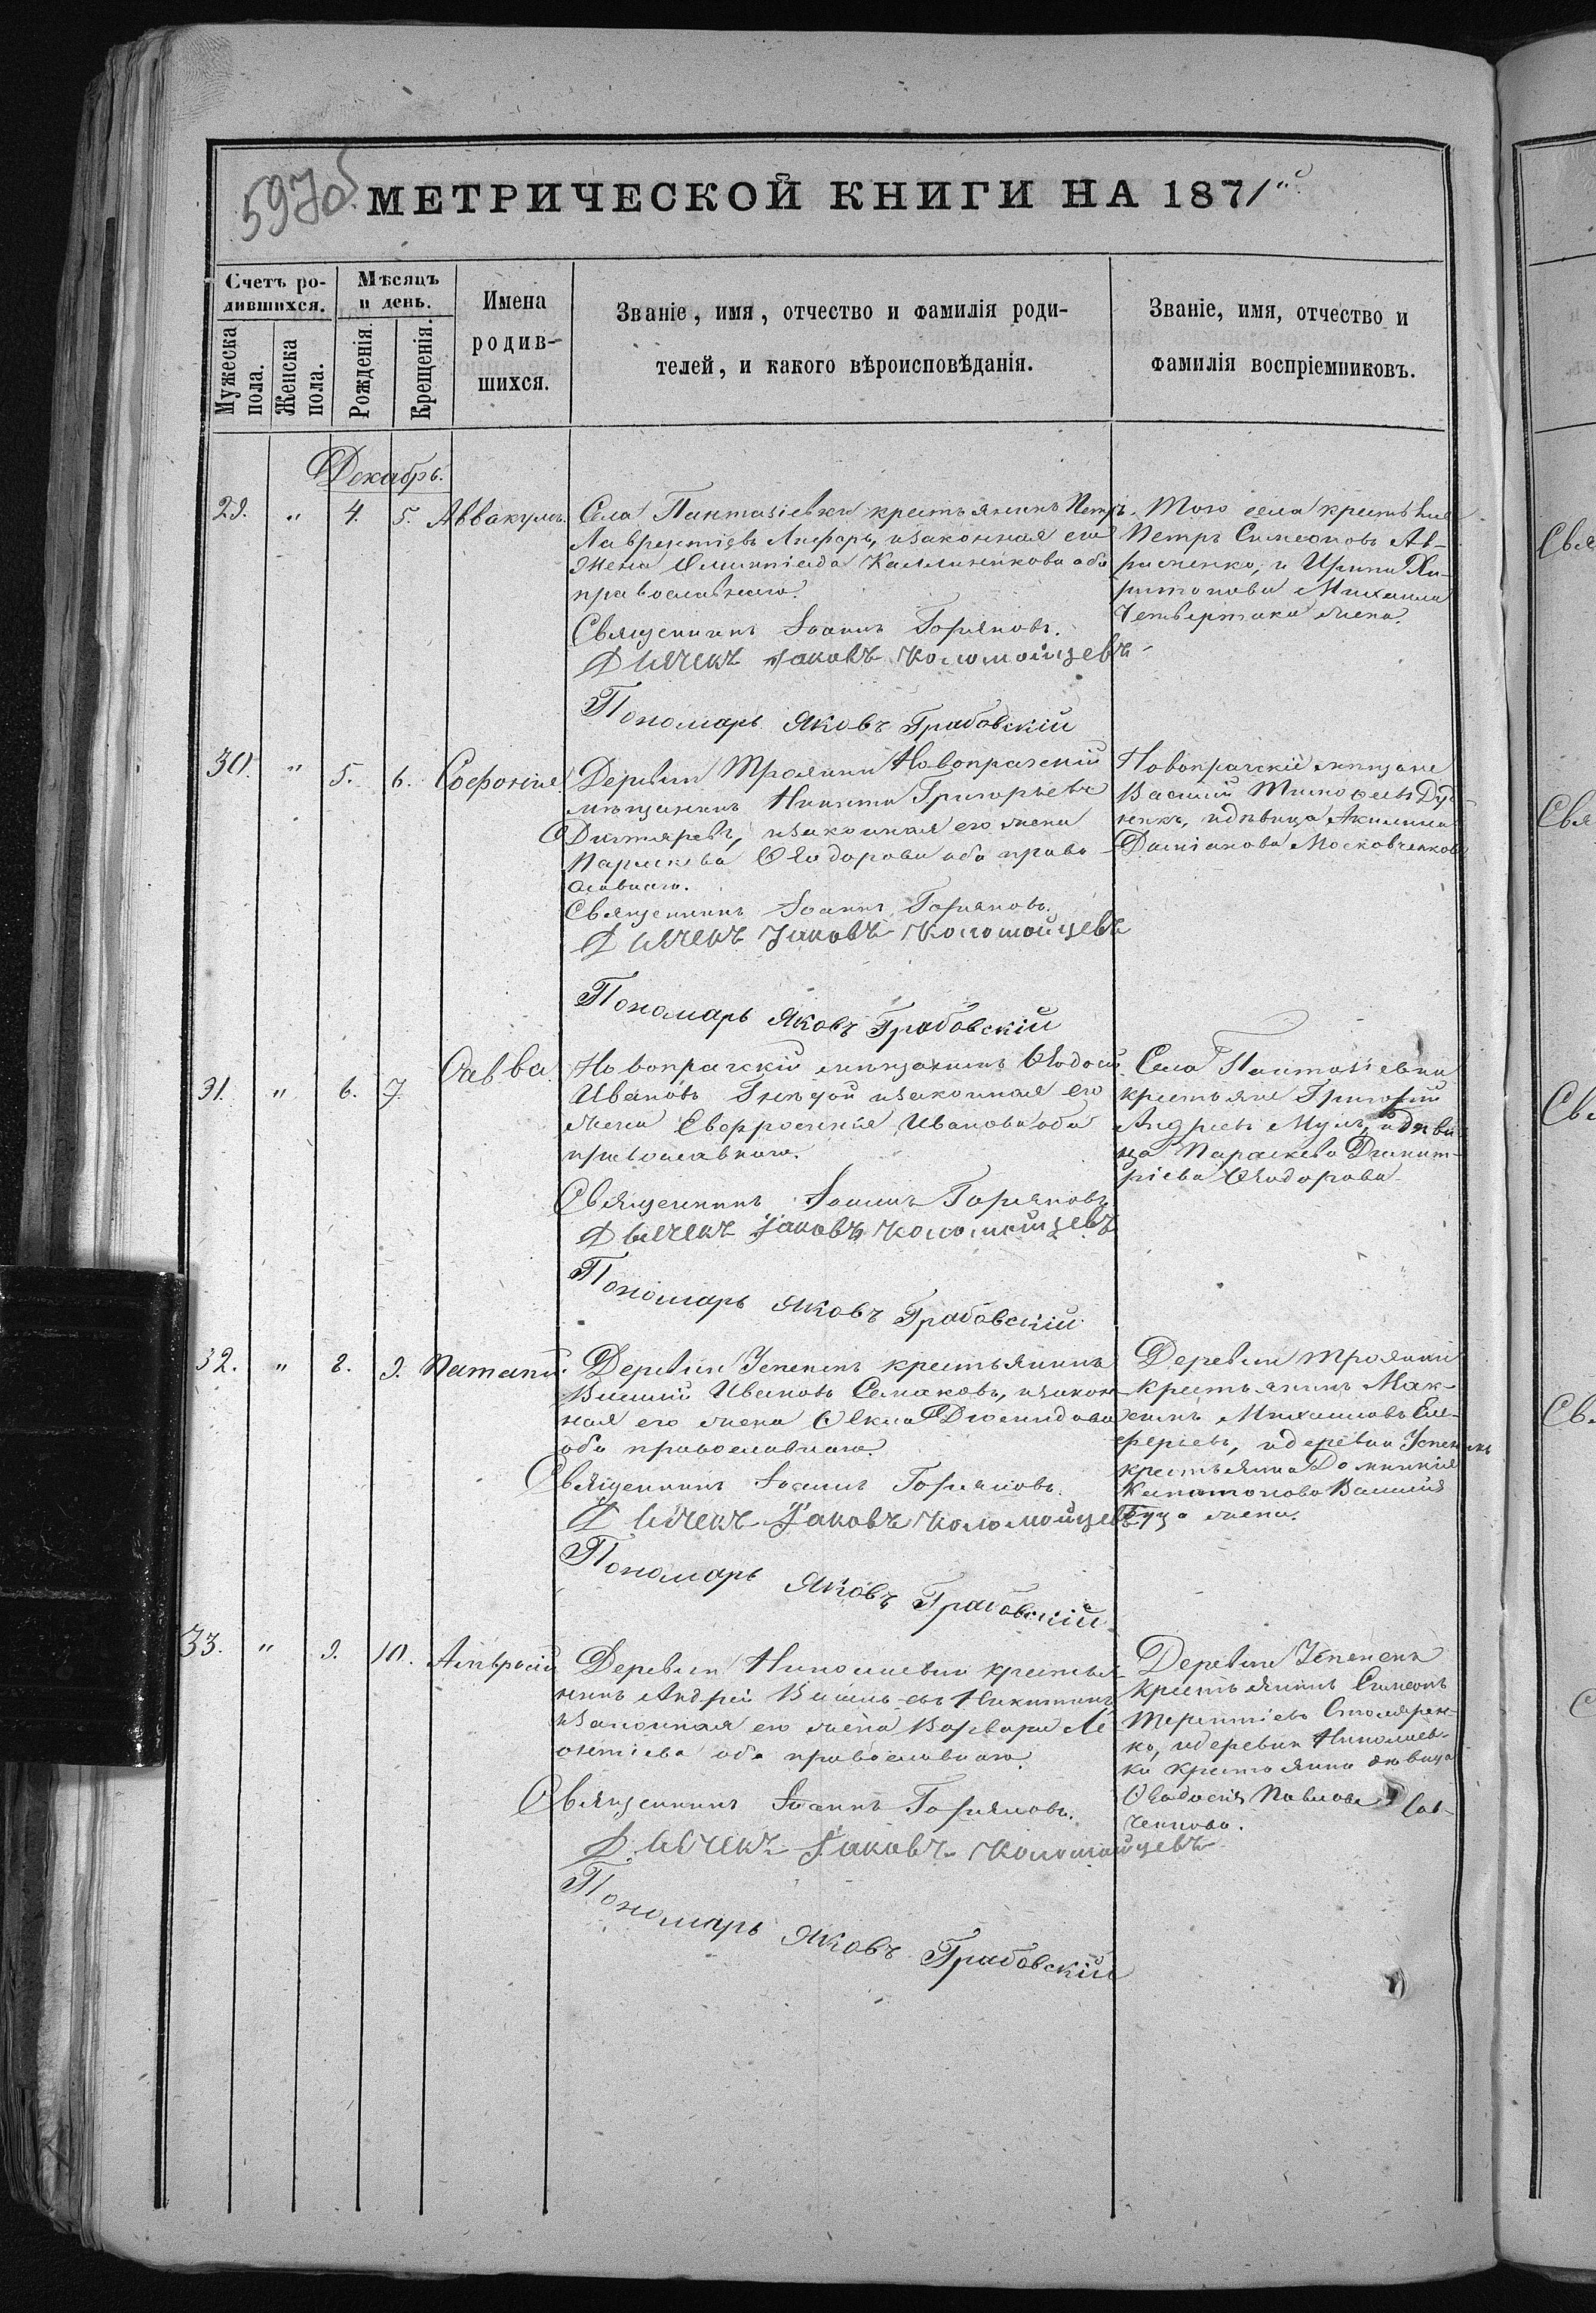 597об
МЕТРИЧЕСКОЙ КНИГИ НА 1871й
Счетъ ро-
дившихся.
Мужеска пола.
Женска пола.
Мѣсяцъ
и день.
Рожденія.
Крещенія.
Имена
родив-
шихся.
Званіе, имя, отчество и фамилія роди-
телей, и какого вѣроисповѣданія.
Званіе, имя, отчество и
фамилія воспріемниковъ.
Декабрь.
29. " 4. 5. Аввакумъ.
Села Пантазіевки крестьянинъ Петръ
Лаврентіевъ, и законная его
жена Олимпіада Каллиникова оба
православнаго.
Священникъ Іоаннъ Горяновъ.
Дьячекъ Іаковъ Коломойцевъ
Пономарь Яковъ Грабовскій
Того села крестьяне
Петръ Симеоновъ Ав-
раменко, и Ирина Ха-
ритонова Михаила
Четвертака жена.
30. " 5. 6. Софонія
Деревни Троянки Новопражскій
мѣщанинъ Никита Григорьевъ
Дихтяревъ, и законная его жена
Параскева Ѳеодорова оба право-
славнаго.
Священникъ Іоаннъ Горяновъ.
Дьячекъ Іаковъ Коломойцевъ
Пономарь Яковъ Грабовскій
Новопражскіе мѣщане
Василій Тимоѳеевъ
и дѣвица Акилина
Даміанова Московченкова
31. " 6. 7. Савва
Новопражскій мѣщанинъ Ѳеодосій
Ивановъ и законная его
жена Евфросинія Иванова оба
православнаго.
Священникъ Іоаннъ Горяновъ
Дьячекъ Іаковъ Коломойцевъ
Пономарь Яковъ Грабовскій
Села Пантазіевки
крестьяне Григорій
Андреевъ и дѣви-
ца Параскева Димит-
ріева Ѳеодорова
32. " 8. 9. Патапій.
Деревни крестьянинъ
Василій Ивановъ Семаковъ, и закон-
ная его жена Ѳекла Діомидова
оба православнаго.
Священникъ Іоаннъ Горяновъ.
Дьячекъ Іаковъ Коломойцевъ
Пономарь Яковъ Грабовскій
Деревни Троянки
крестьянинъ Мак-
симъ Михаиловъ Ели-
ферьевъ, и деревни
крестьянка Домникія
Капитонова Василія
жена.
33. " 9. 10. Амвросій
Деревни Николаевки крестья-
нинъ Андрей Васильевъ Никитинъ
и законная его жена Варвара Ле-
онтіева оба православнаго.
Священникъ Іоаннъ Горяновъ.
Дьячекъ Іаковъ Коломойцевъ
Пономарь Яковъ Грабовскій
Деревни
крестьянинъ Симеонъ
Терентіевъ Столярен-
ко, и деревни Николаев-
ки крестьянка дѣвица
Ѳеодосія Павлова Сав-
ченкова.